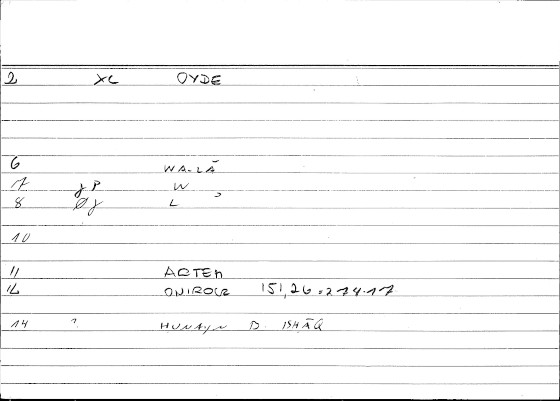 2 XL OYDE
6 WA-LĀ
7 γ P W
8 Ø γ L ʾ
10
11 ARTEM
12 ONIROCR 151,26 = 274.17
14 ? HUNAYN B. ISHĀQ